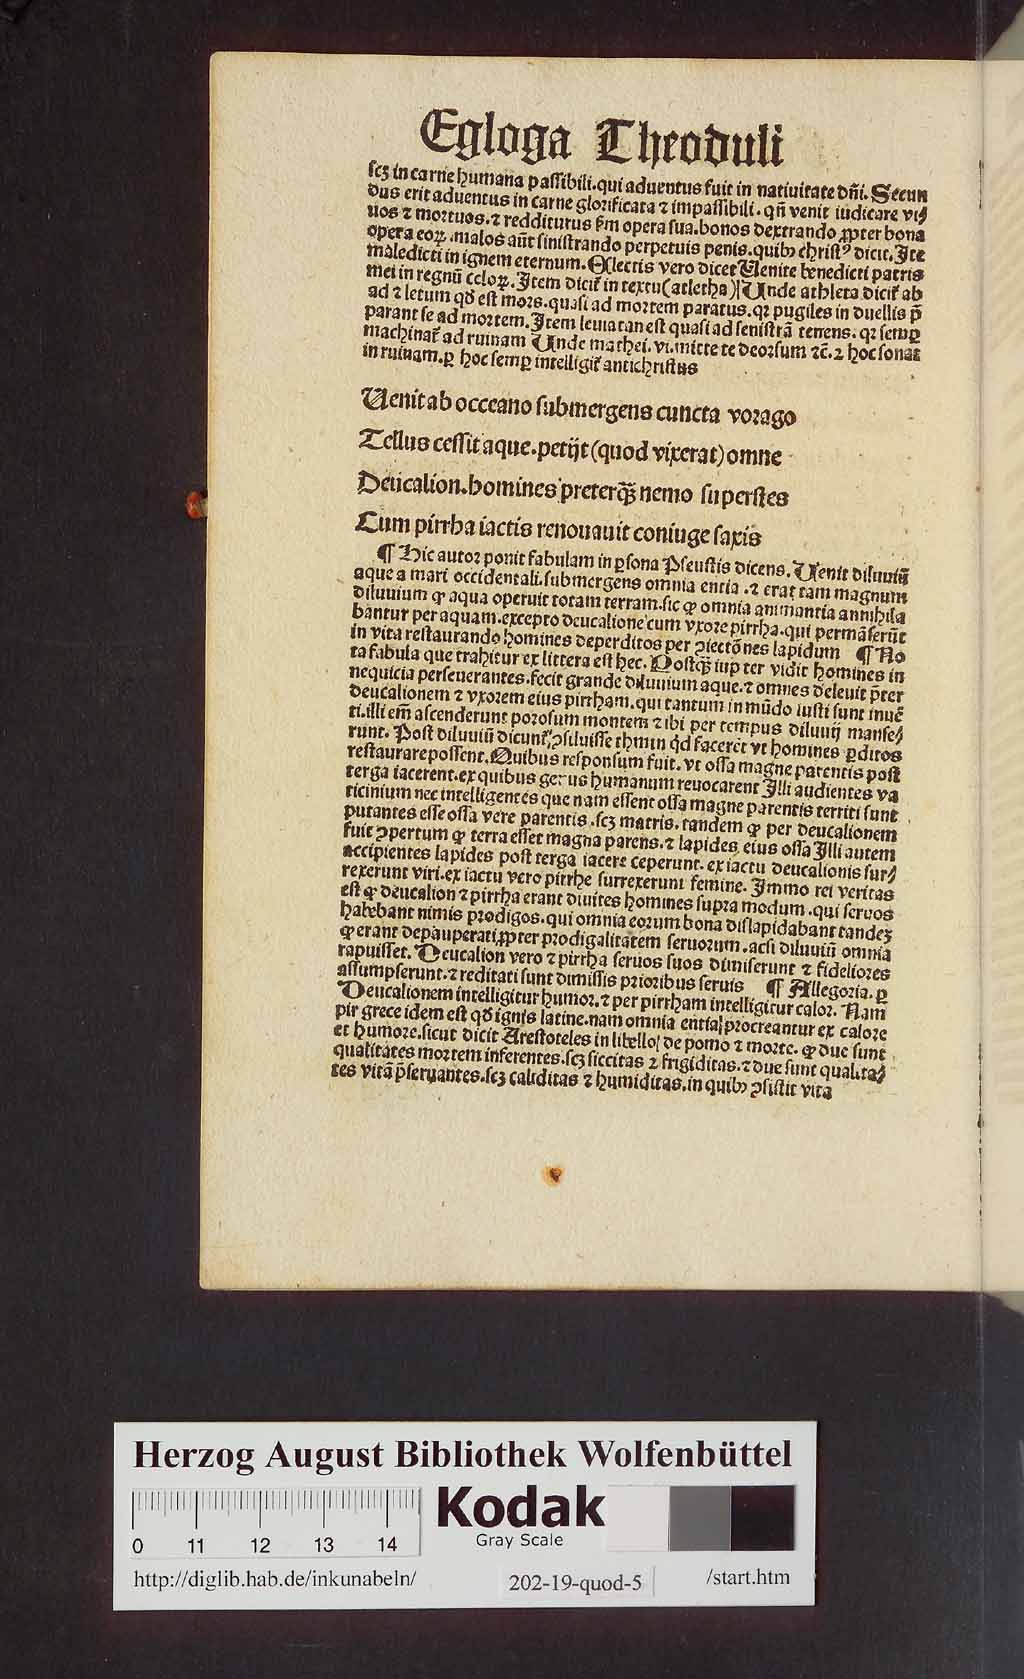 Egloga Theoduli
scꝫ in carne humana passibili. qui aduentus fuit in natiuitate dn̄i. Secun
dus erit aduentus in carne glorificata ⁊ impassibili. qn̄ venit iudicare vi⸗
uos ⁊ mortuos. ⁊ redditurus ẜm opera sua. bonos dextrando ꝓpter bona
opera eoꝝ. malos aūt sinistrando perpetuis penis. quibꝰ christꝰ dicit. Ite
maledicti in ignem eternum. Electis vero dicet Uenite benedicti patris
mei in regnū celoꝝ. Item dicit᷑ in textu (atletha) Unde athleta dicit᷑ ab
ad ⁊ letum qd̓ est mors. quasi ad mortem paratus. qꝛ pugiles in duellis p̄
parant se ad mortem. Item leuiatan est quasi ad senistrā tenens. qꝛ semꝑ
machinat᷑ ad ruinam Unde mathei. vi. mitte te deorsum ⁊c̄. ⁊ hoc sonat
in ruinam. ꝑ hoc semꝑ intelligit᷑ antichristus
Uenit ab occeano submergens cuncta vorago
Tellus cessit aque. petijt (quod vixerat) omne
Deucalion. homines preterqꝫ nemo superstes
Cum pirrha iactis renouauit coniuge saxis
¶ Hic autor ponit fabulam in ꝑsona Pseustis dicens. Uenit diluuiū
aque a mari occidentali. submergens omnia entia. ⁊ erat tam magnum
diluuium ꝙ aqua operuit totam terram. sic ꝙ omnia animantia annihila
bantur per aquam. excepto deucalione cum vxore pirrha. qui permāserūt
in vita restaurando homines deperditos per ꝓiectōnes lapidum ¶ No
ta fabula que trahitur ex littera est hec. Postqꝫ iupiter vidit homines in
nequicia perseuerantes. fecit grande diluuium aque. ⁊ omnes deleuit p̄ter
deucalionem ⁊ vxorem eius pirrham. qui tantum in mūdo iusti sunt inuē
ti. illi em̄ ascenderunt porosum montem ⁊ ibi per tempus diluuij manse⸗
runt. Post diluuiū dicunt᷑ ꝯsiluisse themin qd̓ facerēt vt homines ꝑditos
restaurare possent. Quibus responsum fuit. vt ossa magne parentis post
terga iacerent. ex quibus genus humanum reuocarent Illi audientes va
ticinium nec intelligentes que nam essent ossa magne parentis territi sunt
putantes esse ossa vere parentis. scꝫ matris. tandem ꝙ per deucalionem
fuit ꝯpertum ꝙ terra esset magna parens. ⁊ lapides eius ossa Illi autem
accipientes lapides post terga iacere ceperunt. ex iactu deucalionis sur⸗
rexerunt viri. ex iactu vero pirrhe surrexerunt femine. Immo rei veritas
est ꝙ deucalion ⁊ pirrha erant diuites homines supra modum. qui seruos
habebant nimis prodigos. qui omnia eorum bona dislapidabant tandeꝫ
ꝙ erant depauperati. ꝓpter prodigalitatem seruorum. acsi diluuiū omnia
rapuisset. Deucalion vero ⁊ pirrha seruos suos dimiserunt ⁊ fideliores
assumpserunt. ⁊ reditati sunt dimissis prioribus seruis ¶ Allegoria. ꝑ
Deucalionem intelligitur humor. ⁊ per pirrham intelligitur calor. Nam
pir grece idem est qd̓ ignis latine. nam omnia entia procreantur ex calore
et humore. sicut dicit Arestoteles in libello de pomo ⁊ morte. ꝙ due sunt
qualitates mortem inferentes. scꝫ siccitas ⁊ frigiditas. ⁊ due sunt qualita⸗
tes vitā p̄seruantes. scꝫ caliditas ⁊ humiditas. in quibꝰ ꝯsistit vita
Herzog August Bibliothek Wolfenbüttel
0 11 12 13 14
Kodak
Gray Scale
http://diglib.hab.de/inkunabeln/ 202-19-quod-5 /start.htm